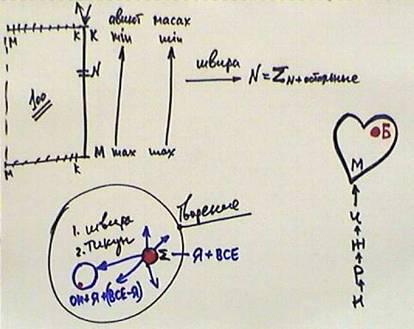 М К К авиют масах
min min
N
100
швира → N = Σ N + остальные
М К М max max
Б
М
Ч
Ж
Р
Н
Творение
1. швира
2. тикун
Σ — Я + ВСЕ
ОН + Я + (ВСЕ - Я)